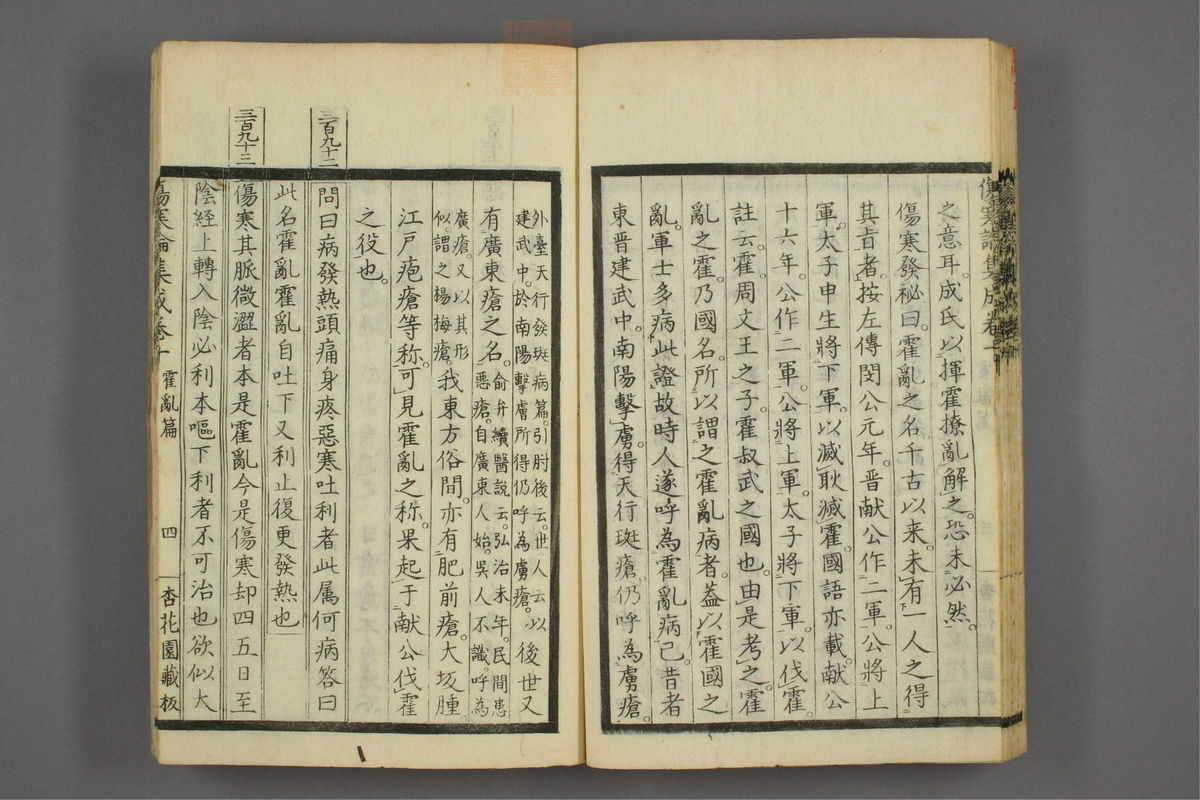 之意耳。成氏以揮霍撩亂解之。恐未必然。
傷寒發祕曰。霍亂之名千古以来。未有一人之得
其旨者。按左傳閔公元年。晋献公作二軍。公將上
軍。太子申生將下軍。以滅耿滅霍。國語亦載献公
十六年。公作二軍。公將上軍。太子將下軍。以伐霍。
註云。霍。周文王之子。霍叔武之國也。由是考之霍
亂之霍。乃國名。所以謂之霍亂病者。蓋以霍國之
亂。軍士多病此證。故時人遂呼為霍亂病已。昔者
東晋建武中。南陽擊虜。得天行斑瘡。仍呼為虜瘡。
外臺天行發斑病篇。引肘後云。世人云。以
建武中。於南陽擊虜所得仍呼為虜瘡。
後世又
有廣東瘡之名。
俞弁續醫説云。弘治末年。民間患
惡瘡。自廣東人始。吳人不識。呼為
廣瘡。又以其形
似。謂之楊梅瘡。
我東方俗間。亦有肥前瘡。大坂腫。
江戸疱瘡等称。可見霍亂之称。果起于献公伐霍
之役也。
三百九十二
問曰病發熱頭痛身疼惡寒吐利者此属何病答曰
此名霍亂霍亂自吐下又利止復更發熱也
三百九十三
傷寒其脈微澀者本是霍亂今是傷寒却四五日至
陰経上轉入陰必利本嘔下利者不可治也欲似大
傷寒論集成卷十 霍亂篇 四 杏花園藏板